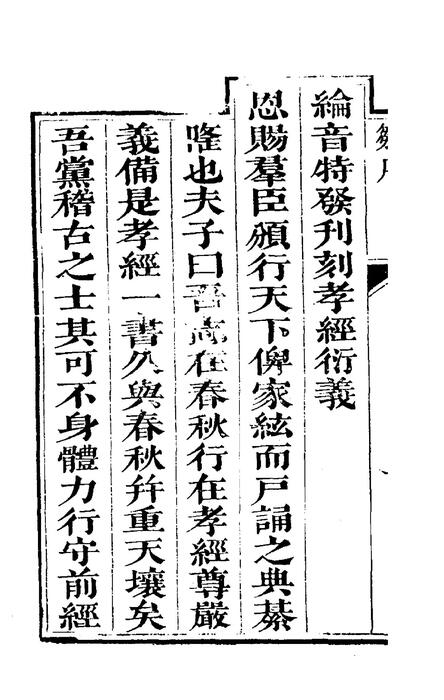 綸音特發刊刻孝經衍義
恩賜羣臣頒行天下俾家絃而戸誦之典綦
隆也夫子曰吾志在春秋行在孝經尊嚴
義備是孝經一書久與春秋幷重天壤矣
吾黨稽古之士其可不身體力行守前經